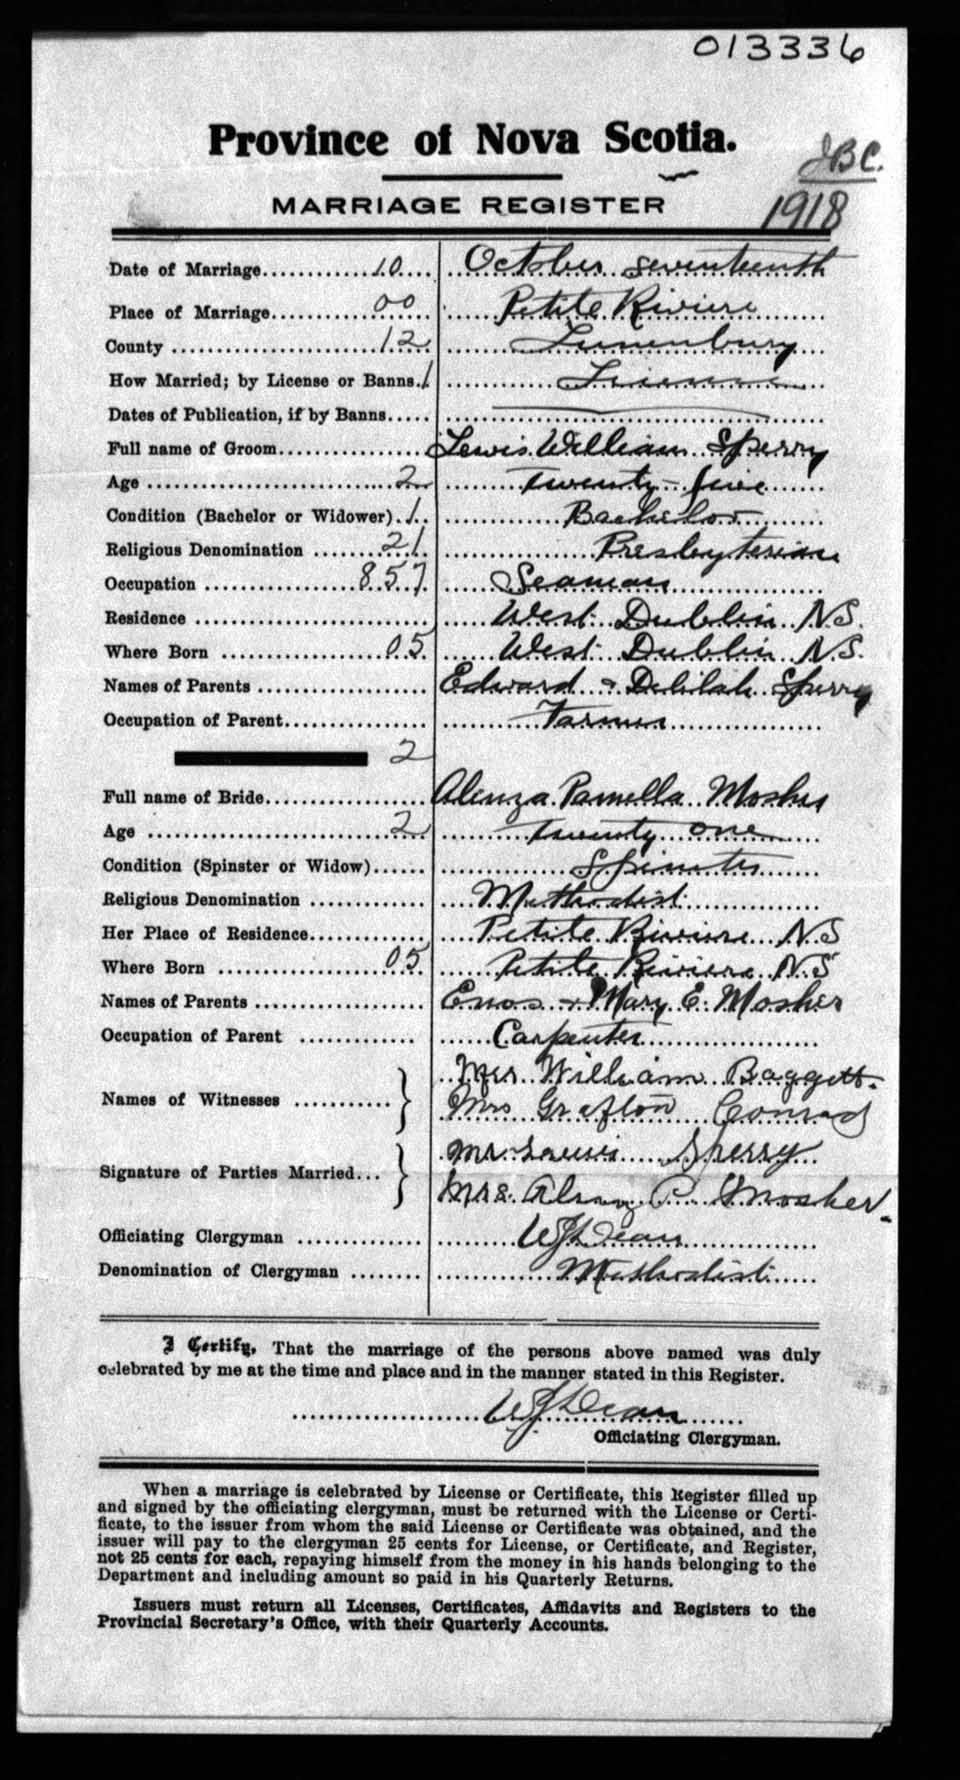 013336
Province of Nova Scotia.
JBC.
MARRIAGE REGISTER
1918
Date of Marriage............10.... October seventeenth
Place of Marriage............00 Petite Riviere
County ........................12.. Lunenburg
How Married; by License or Banns.1 License
Dates of Publication, if by Banns.....
Full name of Groom.................. Lewis William Sperry
Age .............................2.. Twenty-five
Condition (Bachelor or Widower).1.. Bachelor
Religious Denomination .......21 Presbyterian
Occupation ..................857 Seaman
Residence .......................... West Dublin N.S.
Where Born ....................05. West Dublin N.S.
Names of Parents .................... Edward & Delilah Sperry
Occupation of Parent................. Farmer
2
Full name of Bride................... Pamella Mosher
Age .............................2.. Twenty one
Condition (Spinster or Widow)...... Spinster
Religious Denomination .............. Methodist
Her Place of Residence............. Petite Riviere N S
Where Born ....................05. Petite Riviere N S
Names of Parents .................... Enos & Mary E. Mosher
Occupation of Parent .............. Carpenter
Names of Witnesses ........... } Mrs William Baggett.
Mrs Grafton Conrad
Signature of Parties Married... } Mr Sperry
Mrs. P. Mosher.
Officiating Clergyman ............... W J Dean
Denomination of Clergyman ........ Methodist
I Certify, That the marriage of the persons above named was duly
celebrated by me at the time and place and in the manner stated in this Register.
W J Dean
Officiating Clergyman.
When a marriage is celebrated by License or Certificate, this Register filled up
and signed by the officiating clergyman, must be returned with the License or Certi-
ficate, to the issuer from whom the said License or Certificate was obtained, and the
issuer will pay to the clergyman 25 cents for License, or Certificate, and Register,
not 25 cents for each, repaying himself from the money in his hands belonging to the
Department and including amount so paid in his Quarterly Returns.
Issuers must return all Licenses, Certificates, Affidavits and Registers to the
Provincial Secretary's Office, with their Quarterly Accounts.